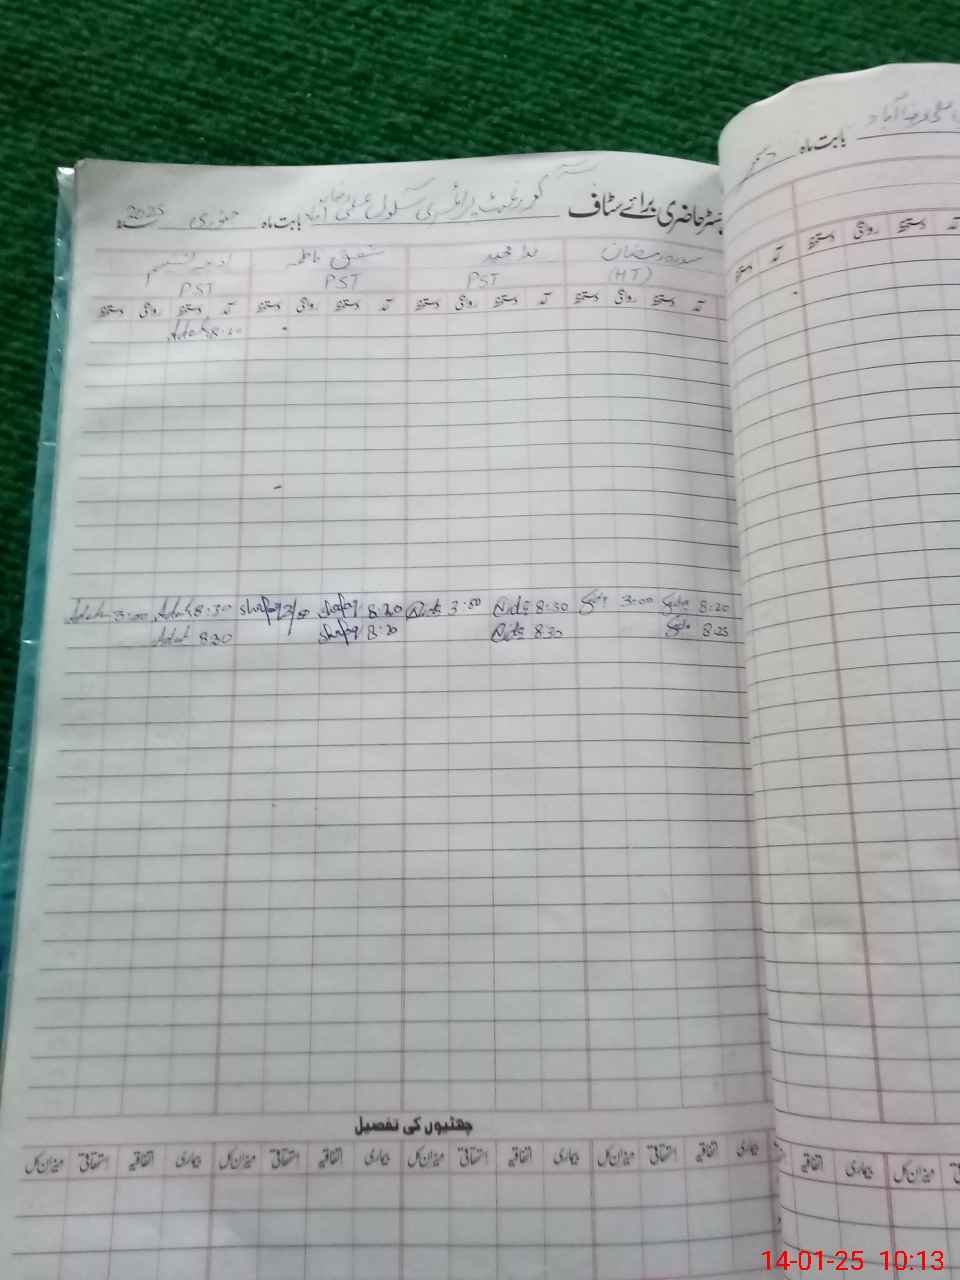 رجسٹر حاضری برائے سٹاف گورنمنٹ پرائمری سکول علی رضا آباد بابت ماہ جنوری 2025
سدرہ رمضان ندا مجید شفق فاطمہ
(HT) PST PST PST
آمد دستخط روانگی دستخط آمد دستخط روانگی دستخط آمد دستخط روانگی دستخط آمد دستخط روانگی دستخط
8:20 3:00 8:30 Nida 3:00 Nida 8:20 Shafaq Shafaq 8:30 3:00
8:25 8:30 Nida 8:20 Shafaq 8:20
چھٹیوں کی تفصیل
بیماری اتفاقیہ استحقاقی میزان کل بیماری اتفاقیہ استحقاقی میزان کل بیماری اتفاقیہ استحقاقی میزان کل بیماری اتفاقیہ استحقاقی میزان کل
علی رضا آباد بابت ماہ دسمبر
آمد دستخط روانگی دستخط آمد دستخط
استحقاقی میزان کل بیماری اتفاقیہ
14-01-25 10:13